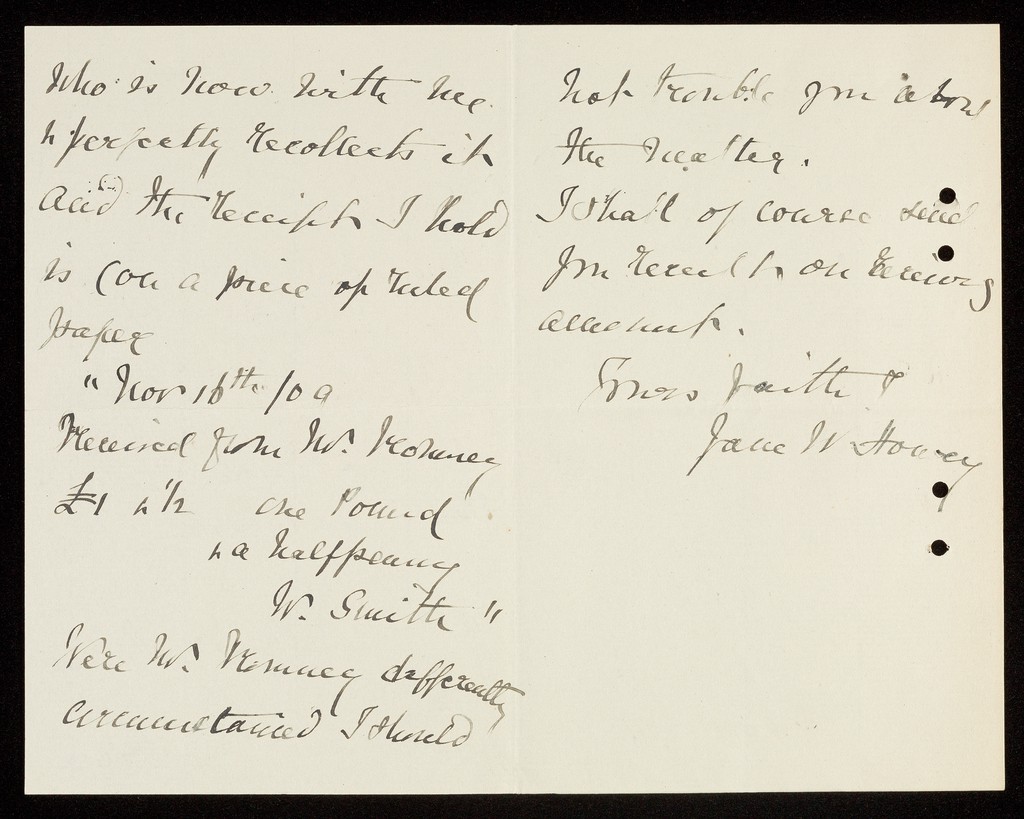 Who is now with me
& perfectly recollects it
and the receipt I hold
is (on a piece of ruled
paper
"Nov 16th /09
Received from Mr. Romney
£1 & ½ one Pound
& a halfpenny
W. Smith"
Were Mr. Romney differently
circumstanced I should
not trouble you about
the matter.
I shall of course send
you receipt on receiving
amount.
Yours faithf
Jane W.